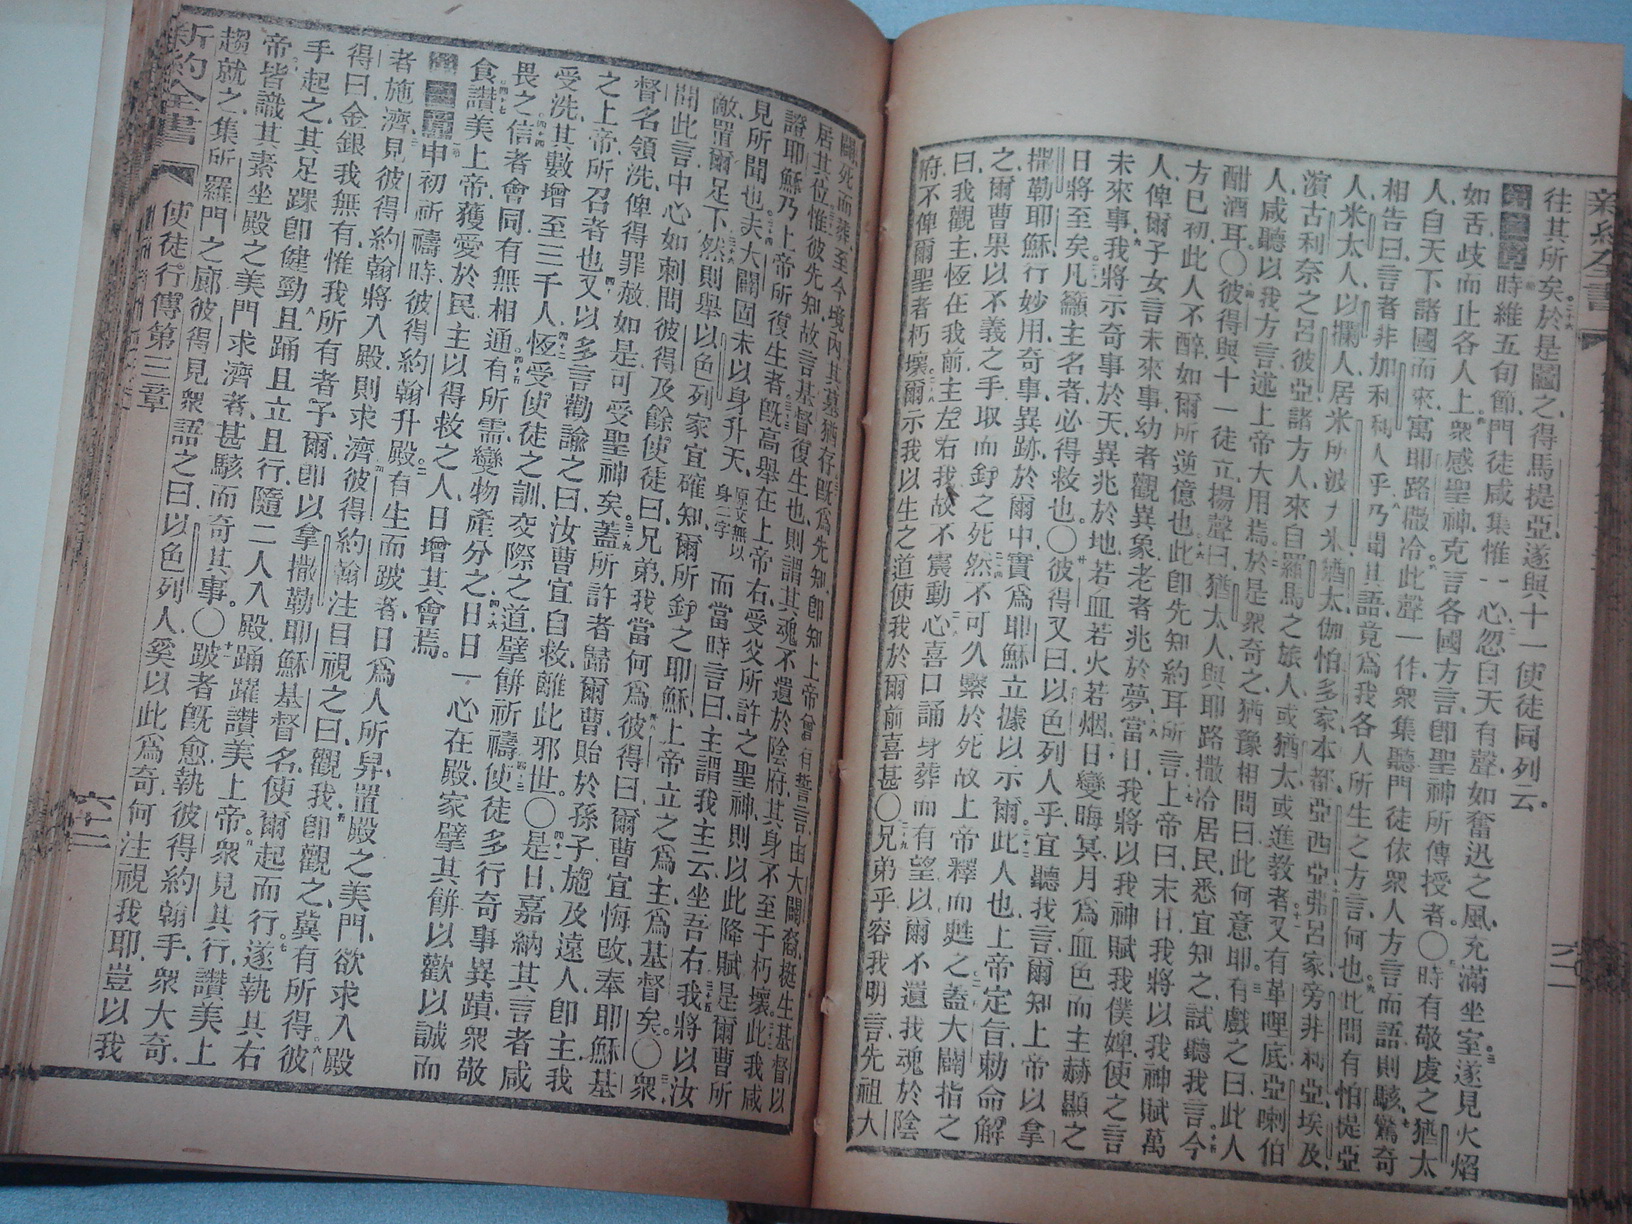 往其所矣於是鬮之得馬提亞遂與十一使徒同列云。
時維五旬節門徒咸集惟一心忽自天有聲如奮迅之風充滿坐室遂見火焰
如舌歧而止各人上衆感聖神克言各國方言卽聖神所傳授者○時有敬虔之猶太
人自天下諸國而來寓耶路撒冷此聲一作衆集聽門徒依衆人方言而語則駭驚奇
相告曰言者非加利利人乎乃聞其語竟爲我各人所生之方言何也此間有怕提亞
人米太人以攔人居米所波大米猶太伽怕多家本都亞西亞弗呂家旁非利亞埃及
濱古利奈之呂彼亞諸方人來自羅馬之旅人或猶太或進教者又有革哩底亞喇伯
人咸聽以我方言述上帝大用焉於是衆奇之猶豫相問曰此何意耶有戲之曰此人
酣酒耳○彼得與十一徒立揚聲曰猶太人與耶路撒冷居民悉宜知之試聽我言今
方巳初此人不醉如爾所逆億也此卽先知約耳所言上帝曰末日我將以我神賦萬
人俾爾子女言未來事幼者觀異象老者兆於夢當日我將以我神賦我僕婢使之言
未來事我將示奇事於天異兆於地若血若火若烟日變晦冥月爲血色而主赫顯之
日將至矣凡籲主名者必得救也○彼得又曰以色列人乎宜聽我言爾知上帝以拿
撒勒耶穌行妙用奇事異跡於爾中實爲耶穌立據以示爾此人也上帝定旨勅命解
之爾曹果以不義之手取而釘之死然不可久繫於死故上帝釋而甦之蓋大闢指之
曰我觀主恆在我前主左右我故不震動心喜口誦身葬而有望以爾不遺我魂於陰
府不俾爾聖者朽壞爾示我以生之道使我於爾前喜甚○兄弟乎容我明言先祖大
闢死而葬至今境內其墓猶存旣爲先知卽知上帝曾自誓言由大闢裔挺生基督以
居其位惟彼先知故言基督復生也則謂其魂不遺於陰府其身不至于朽壞此我咸
證耶穌乃上帝所復生者旣高舉在上帝右受父所許之聖神則以此降賦是爾曹所
見所聞也夫大闢固未以身升天原文無以身二字而當時言曰主謂我主云坐吾右我將以汝
敵置爾足下然則舉以色列家宜確知爾所釘之耶穌上帝立之爲主爲基督矣○衆
聞此言中心如刺問彼得及餘使徒曰兄弟我當何爲彼得曰爾曹宜悔改奉耶穌基
督名領洗俾得罪赦如是可受聖神矣蓋所許者歸爾曹貽於孫子施及遠人卽主我
之上帝所召者也又以多言勸諭之曰汝曹宜自救離此邪世○是日嘉納其言者咸
受洗其數增至三千人恆受使徒之訓交際之道擘餅祈禱使徒多行奇事異蹟衆敬
畏之信者會同有無相通有所需變物產分之日日一心在殿家擘其餅以歡以誠而
食讚美上帝獲愛於民主以得救之人日增其會焉。
申初祈禱時彼得約翰升殿有生而跛者日爲人所舁置殿之美門欲求入殿
者施濟見彼得約翰將入殿則求濟彼得約翰注目視之曰觀我卽觀之冀有所得彼
得曰金銀我無有惟我所有者予爾卽以拿撒勒耶穌基督名使爾起而行遂執其右
手起之其足踝卽健勁且踊且立且行隨二人入殿踊躍讚美上帝衆見其行讚美上
帝皆識其素坐殿之美門求濟者甚駭而奇其事。○跛者旣愈執彼得約翰手衆大奇
趨就之集所羅門之廊彼得見衆語之曰以色列人奚以此爲奇何注視我耶豈以我
新約全書
使徒行傳第三章
六十二